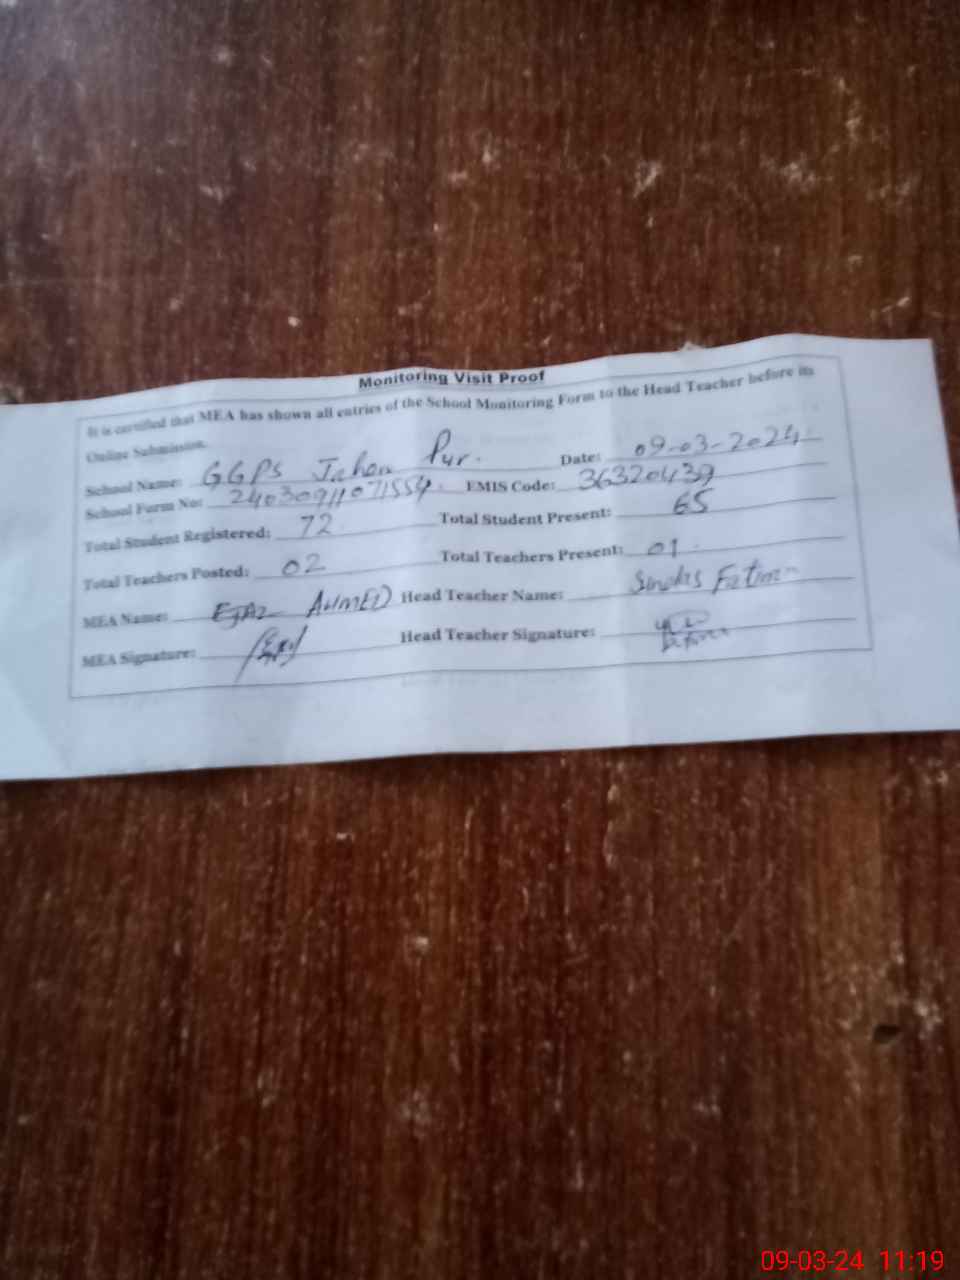 Monitoring Visit Proof
It is certified that MEA has shown all entries of the School Monitoring Form to the Head Teacher before its
Online Submission.
School Name: GGPS Jahan Pur. Date: 09-03-2024
School Form No: 24030911071554. EMIS Code: 36320439
Total Student Registered: 72 Total Student Present: 65
Total Teachers Posted: 02 Total Teachers Present: 01
MEA Name: EJAZ AHMED Head Teacher Name: Sundas Fatima
MEA Signature: Head Teacher Signature:
09-03-24 11:19